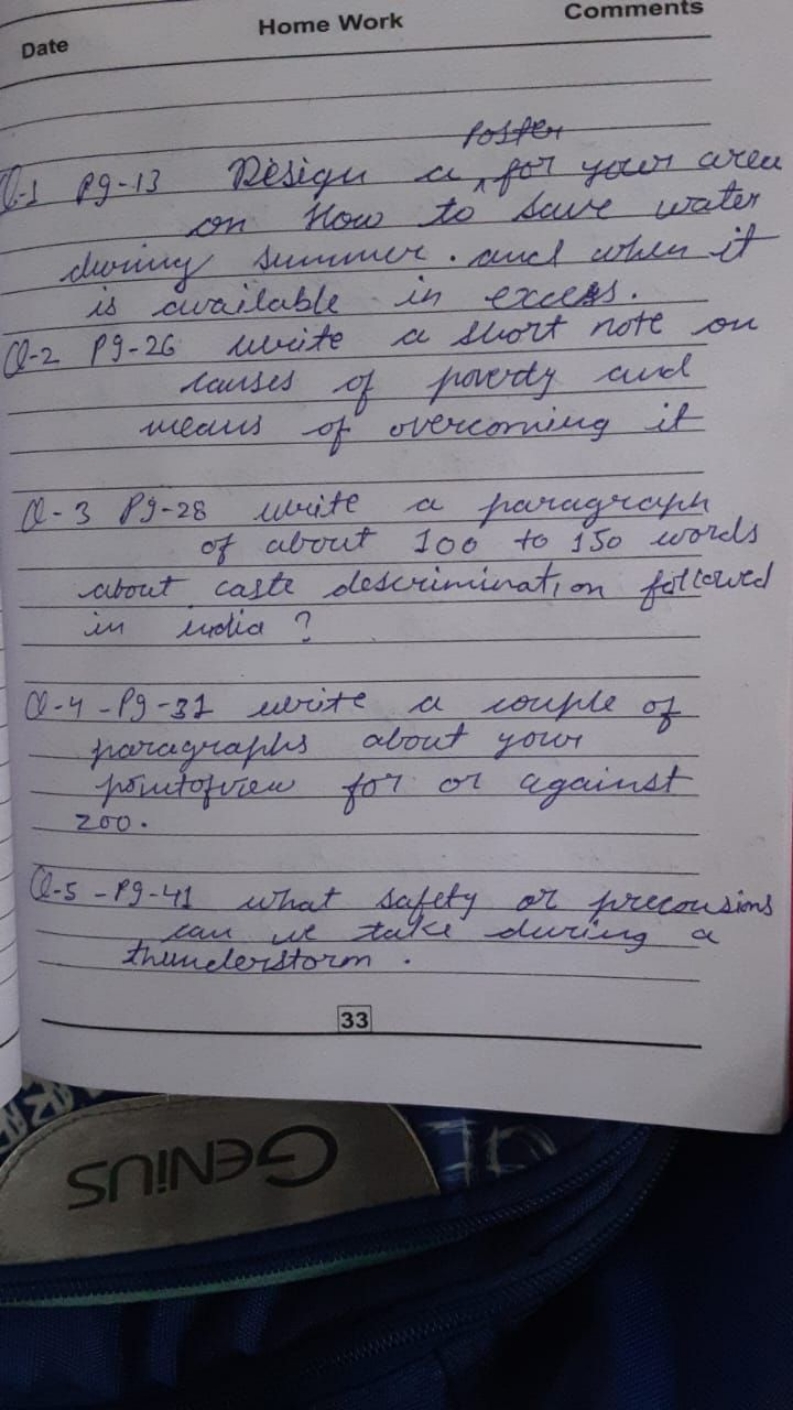 Date Home Work Comments
Poster
Q-1 Pg-13 Design a ^ for your area
on How to save water
during summer. and when it
is available in excess.
Q-2 Pg-26 write a short note on
causes of poverdy and
means of overcoming it
Q-3 Pg-28 write a paragraph
of about 100 to 150 words
about caste descrimination followed
in india ?
Q-4 -Pg-31 write a couple of
paragraphs about your
pointofview for or against
zoo.
Q-5 -Pg-41 what safety or precousions
can we take during a
thunderstorm .
33
GENIUS